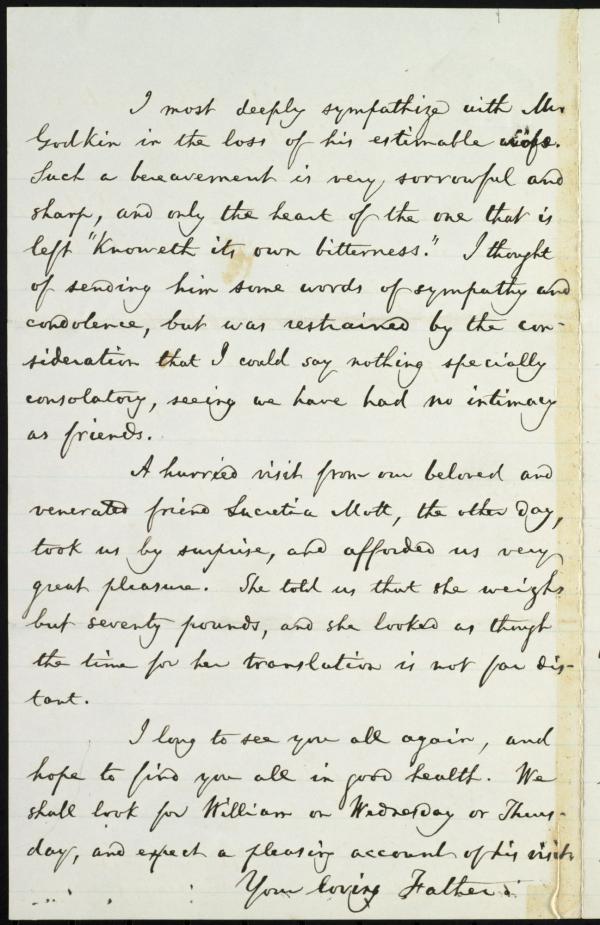 I most deeply sympathize with Mr.
Godkin in the loss of his estimable wife.
Such a bereavement is very sorrowful and
sharp, and only the heart of the one that is
left "knoweth its own bitterness." I thought
of sending him some words of sympathy and
condolence, but was restrained by the con-
sideration that I could say nothing specially
consolatory, seeing we have had no intimacy
as friends.
A hurried visit from our beloved and
venerated friend Lucretia Mott, the other day,
took us by surprise, and afforded us very
great pleasure. She told us that she weighs
but seventy pounds, and she looked as though
the time for her translation is not far dis-
tant.
I long to see you all again, and
hope to find you all in good health. We
shall look for William on Wednesday or Thurs-
day, and expect a pleasing account of his visit.
Your loving Father.